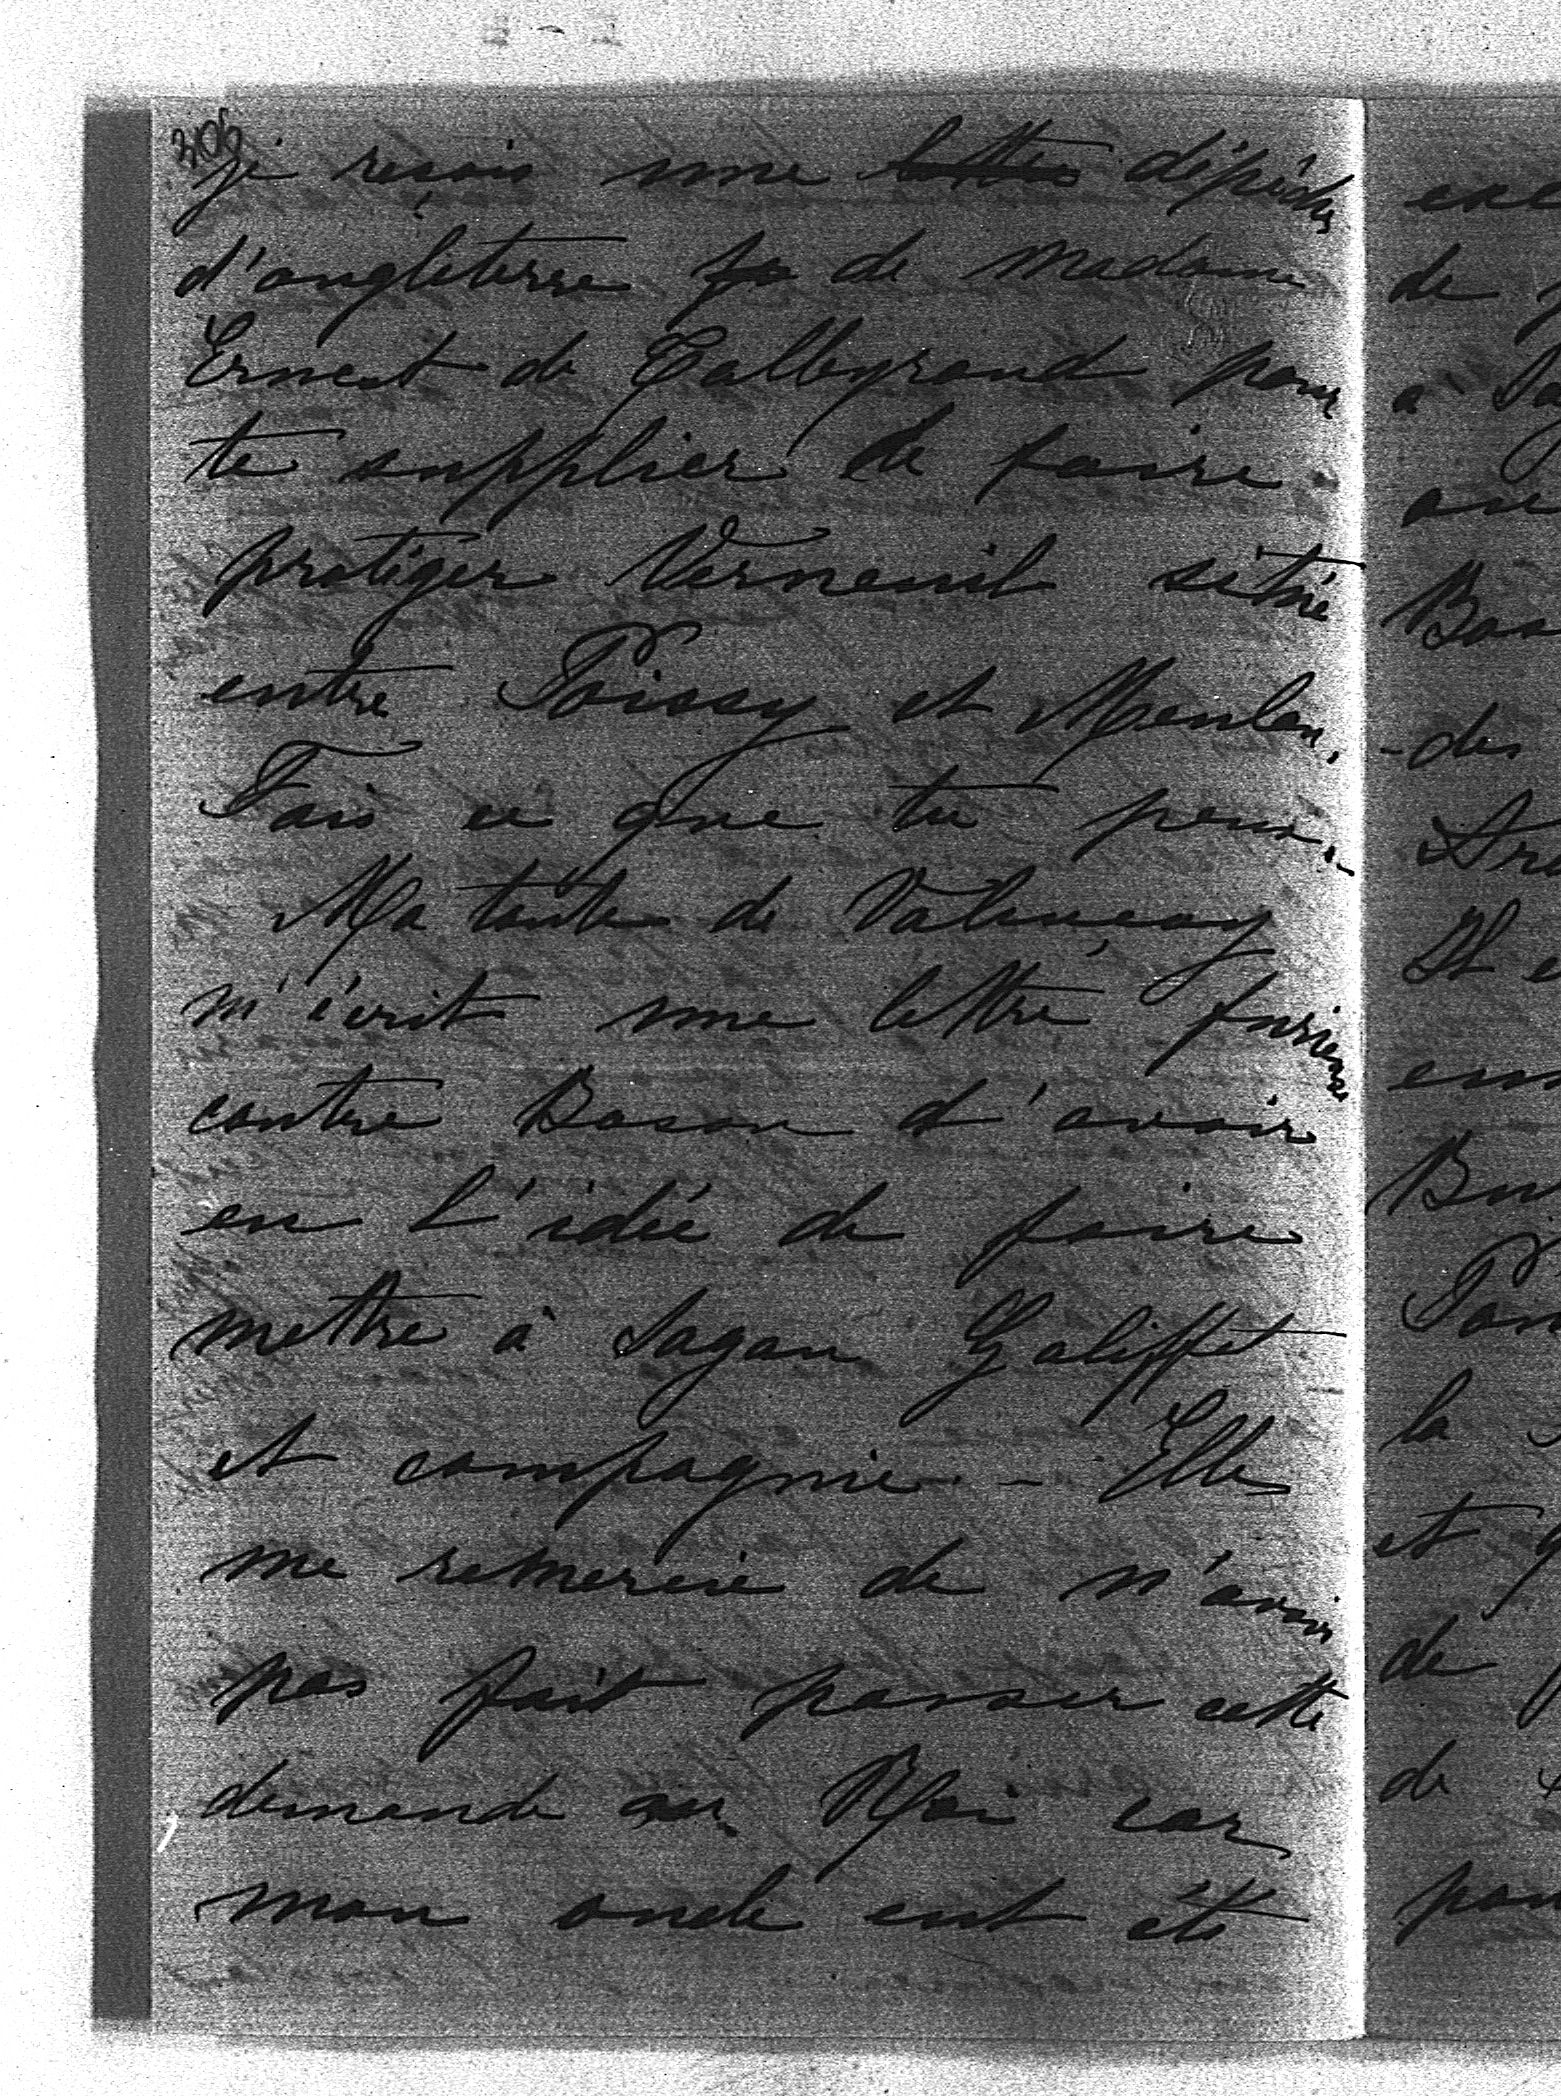 306
je reçois une lettre dépêche
d'angleterre de Madame
Ernest de Talleyrand pour
te supplier de faire
protéger Verneuil situé
entre Poissy et Meulan.
Fais ce que tu peux. -
Ma tante de Valençay
m'écrit une lettre furieuse
contre Boson d'avoir
eu l'idée de faire
mettre à Sagan Galiffet
et compagnie - Elle
me remercie de n'avoir
pas fait passer cette
demande au Roi car
mon oncle eut été
de
a
des
la
et
de
de